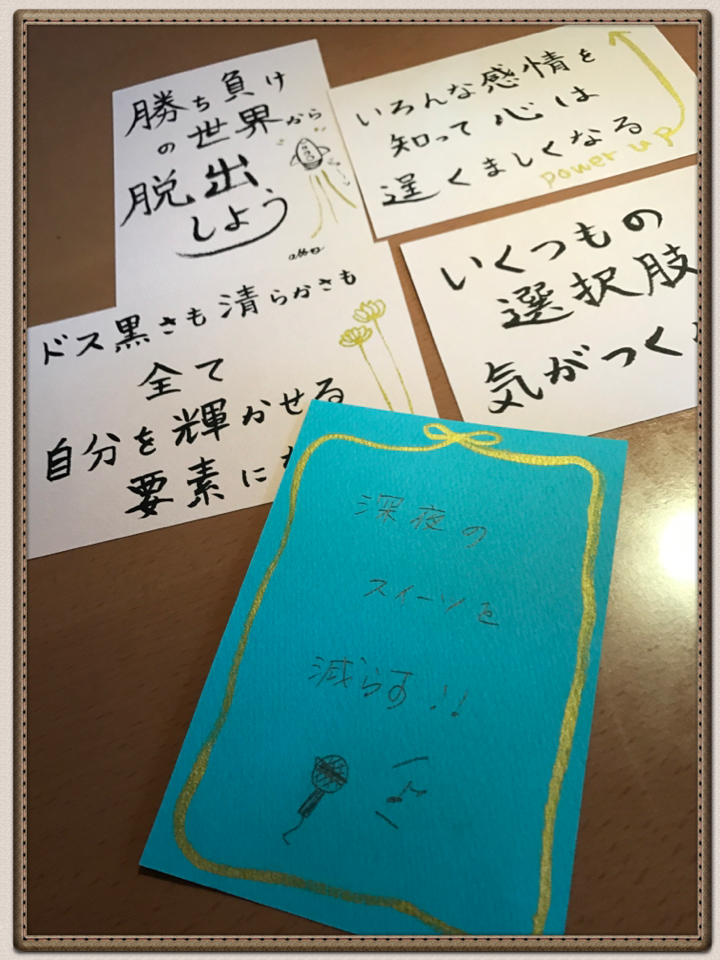 勝ち負け
の世界から
脱出
しよう
いろんな感情を
知って心は
逞くましくなる
power up
いくつもの
選択肢
気がつく
ドス黒さも清らかさも
全て
自分を輝かせる
要素に
深夜の
スイーツを
減らす!!